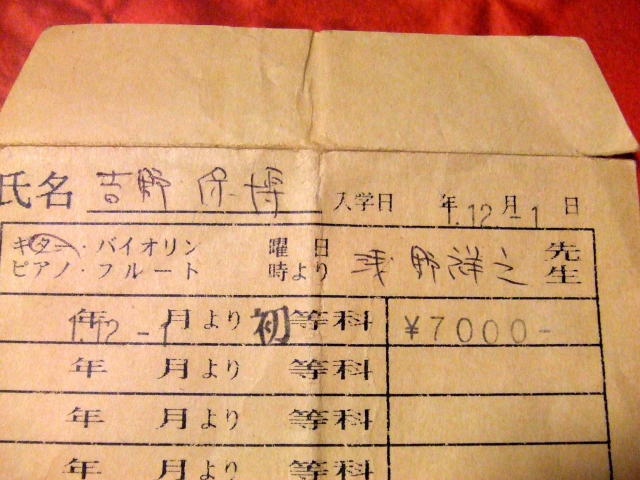 氏名 吉野 保博 入学日 年 月 日 1.12-1
ギター・バイオリン 曜日 浅野洋之 先生
ピアノ・フルート 時より
年 月より 初等科 ¥7000- 1.12-1
年 月より 等科
年 月より 等科
年 月より 等科